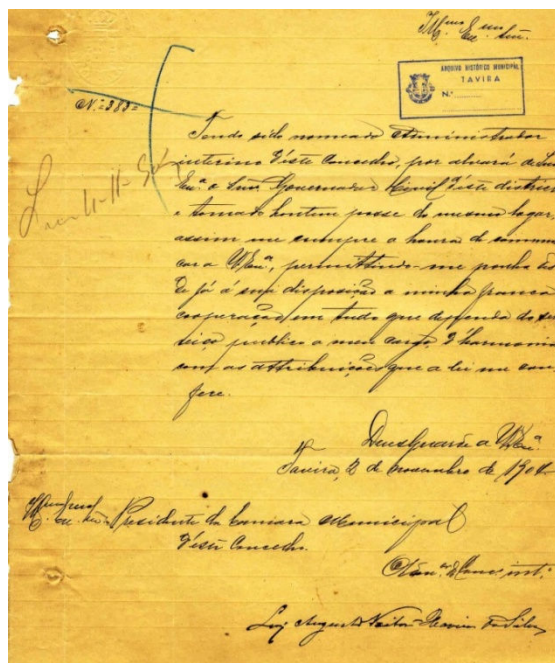 Ill.mo Ex.mo Snr.
ARQUIVO HISTÓRICO MUNICIPAL
TAVIRA
N.º
N.º 383
Tendo sido nomeado Administrador
interino d'este Concelho, por alvará de Sua
Ex.ª o Snr. Governador Civil d'este districto
e tomado hontem posse do mesmo logar,
assim me cumpre a honra de commu
car a V. Ex.ª, permittindo-me ponha des
de já á sua disposição a minha franca
cooperação em tudo que dependa do ser
viço publico a meu cargo d'harmonia
com as attribuições que a lei me con
fere.
Deus Guarde a V. Ex.ª
Tavira, 2 de novembro de 1904
Ill.mo Ex.mo Snr. Presidente da Camara Municipal
d'este Concelho.
O Adm.or do Conc. int.º
Augusto da Silva